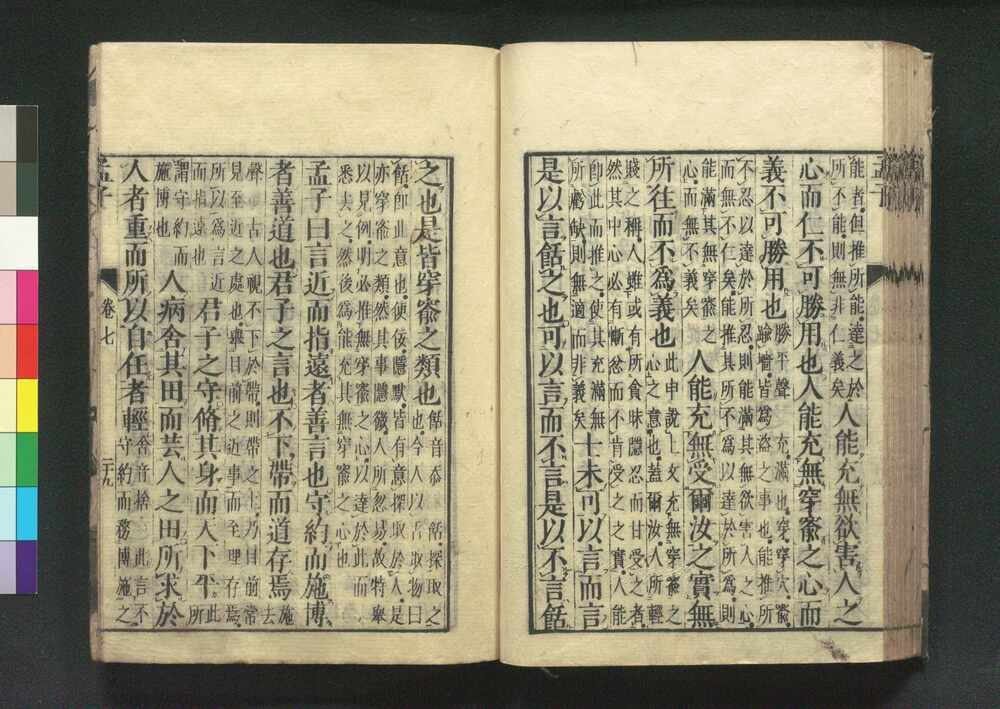 孟子
能者但推所能達之於
所不能則無非仁義矣
人能充無欲害人之
心而仁不可勝用也人能充無穿窬之心而
義不可勝用也
勝平聲 充滿也穿穿穴窬
踰墻皆為盗之事也能推所
不忍以達於所忍則能滿其無欲害人之心
而無不仁矣能推其所不為以達於所為則
能滿其無穿窬之
心而無不義矣
人能充無受爾汝之實無
所往而不為義也
此申說上文充無穿窬之
心之意也蓋爾汝人所輕
賤之稱人雖或有所貪昧隱忍而甘受之者
然其中心必有慚忿而不肯受之之實人能
卽此而推之使其充滿無
所虧缺則無適而非義矣
士未可以言而言
是以言餂之也可以言而不言是以不言餂
之也是皆穿窬之類也
餂音忝 餂探取之
也今人以舌取物曰
餂卽此意也便佞隱默皆有意探取於人是
亦穿窬之類然其事隱微人所忽易故特舉
以見例明必推無穿窬之心以達於此而
悉去之然後為能充其無穿窬之心也
孟子曰言近而指遠者善言也守約而施博
者善道也君子之言也不下帶而道存焉
施
去
聲 古人視不下於帶則帶之上乃目前常
見至近之處也舉目前之近事而至理存焉
所以為言近
而指遠也
君子之守脩其身而天下平
此
所
謂守約而
施博也
人病舍其田而芸人之田所求於
人者重而所以自任者輕
舍音捨 此言不
守約而務博施之
孟子
卷七
二十九